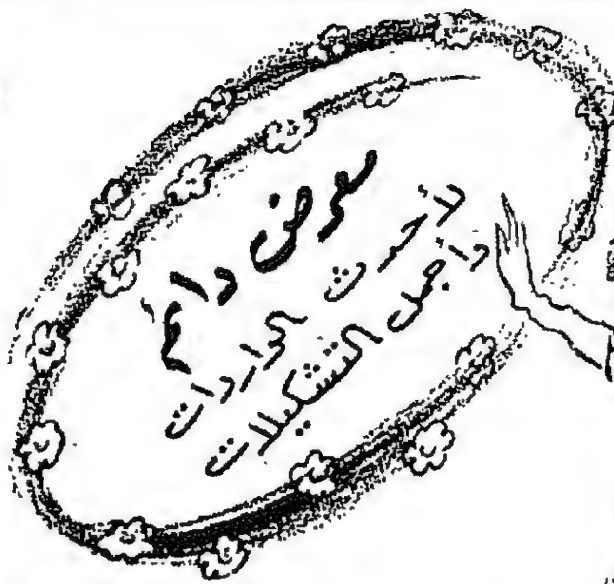 معرض دائم
لأحدث الواردات
وأجمل التشكيلات